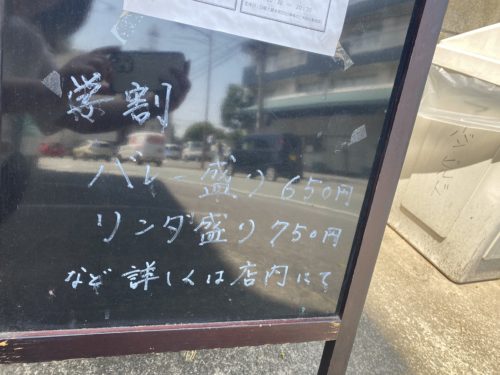 学割
バレー盛り 650円
リンダ盛り 750円
など 詳しくは店内にて